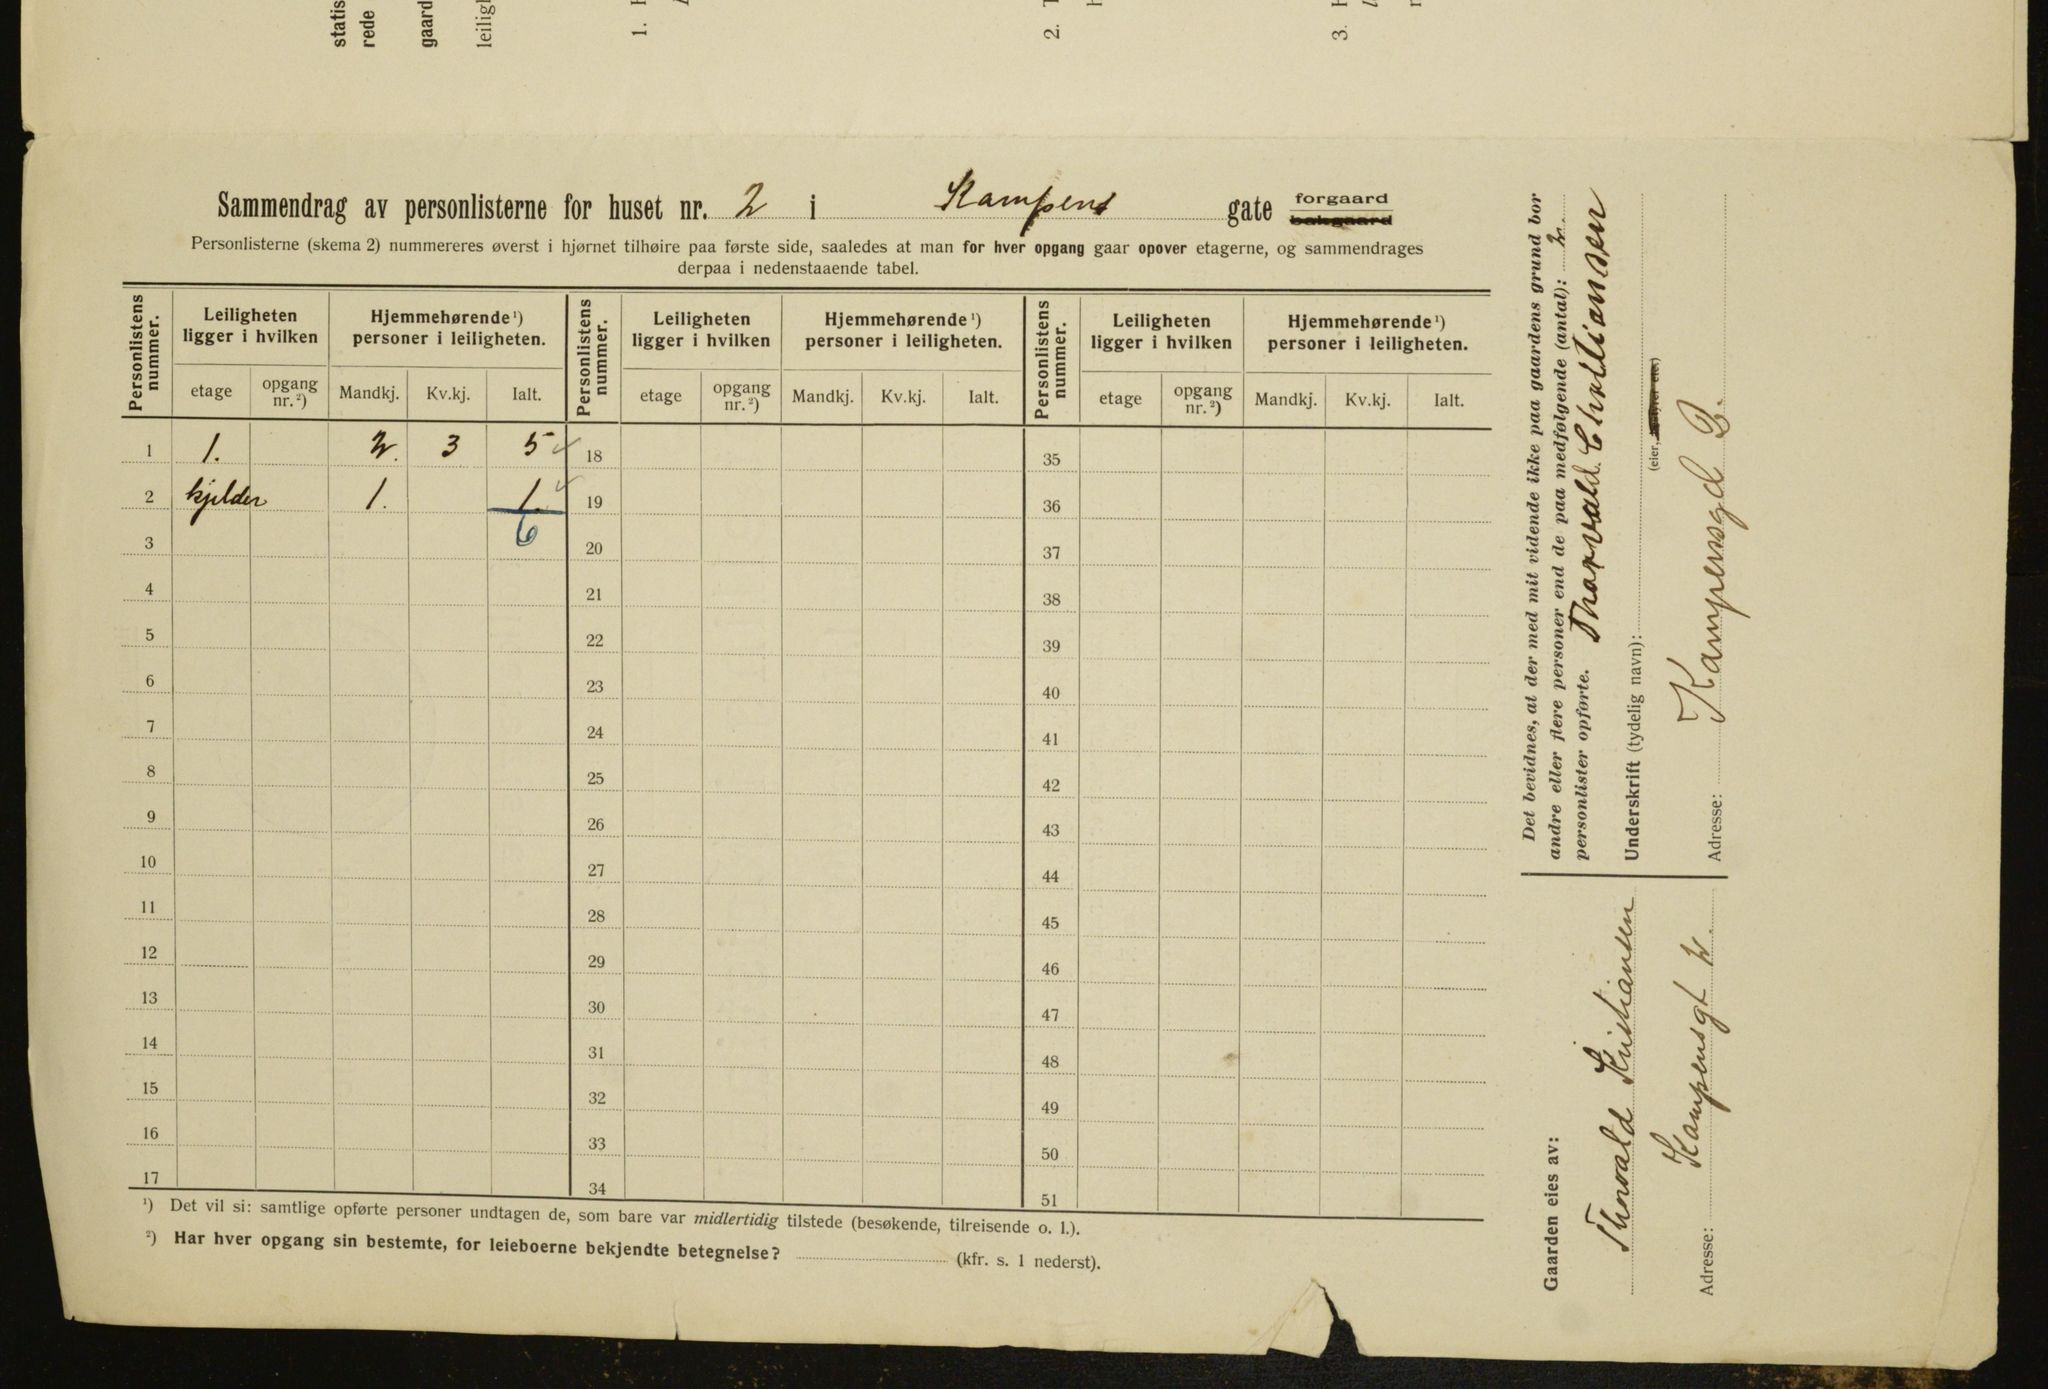 statis
rede
gaard
leilig
1.
2.
3.
Sammendrag av personlisterne for huset nr. 2 i Kampens gate forgaard
bakgaard
Personlisterne (skema 2) nummereres øverst i hjørnet tilhøire paa første side, saaledes at man for hver opgang gaar opover etagerne, og sammendrages
derpaa i nedenstaaende tabel.
Personlistens nummer. Leiligheten ligger i hvilken Hjemmehørende ¹) personer i leiligheten. Personlistens nummer. Leiligheten ligger i hvilken Hjemmehørende ¹) personer i leiligheten. Personlistens nummer. Leiligheten ligger i hvilken Hjemmehørende ¹) personer i leiligheten.
etage opgang nr. ²) Mandkj. Kv.kj. Ialt. etage opgang nr. ²) Mandkj. Kv.kj. Ialt. etage opgang nr. ²) Mandkj. Kv.kj. Ialt.
1 1. 2. 3 5 18 35
2 kjelder 1. 1. 19 36
3 6 20 37
4 21 38
5 22 39
6 23 40
7 24 41
8 25 42
9 26 43
10 27 44
11 28 45
12 29 46
13 30 47
14 31 48
15 32 49
16 33 50
17 34 51
¹) Det vil si: samtlige opførte personer undtagen de, som bare var midlertidig tilstede (besøkende, tilreisende o. l.).
²) Har hver opgang sin bestemte, for leieboerne bekjendte betegnelse? (kfr. s. 1 nederst).
Det bevidnes, at der med mit vidende ikke paa gaardens grund bor
andre eller flere personer end de paa medfølgende (antal): 2.
personlister opførte. Thorvald Christiansen
Underskrift (tydelig navn):
(eier, bestyrer eies)
Kampensgd 2.
Adresse:
Gaarden eies av:
Thorvald Kristiansen
Kampensgt 2.
Adresse: